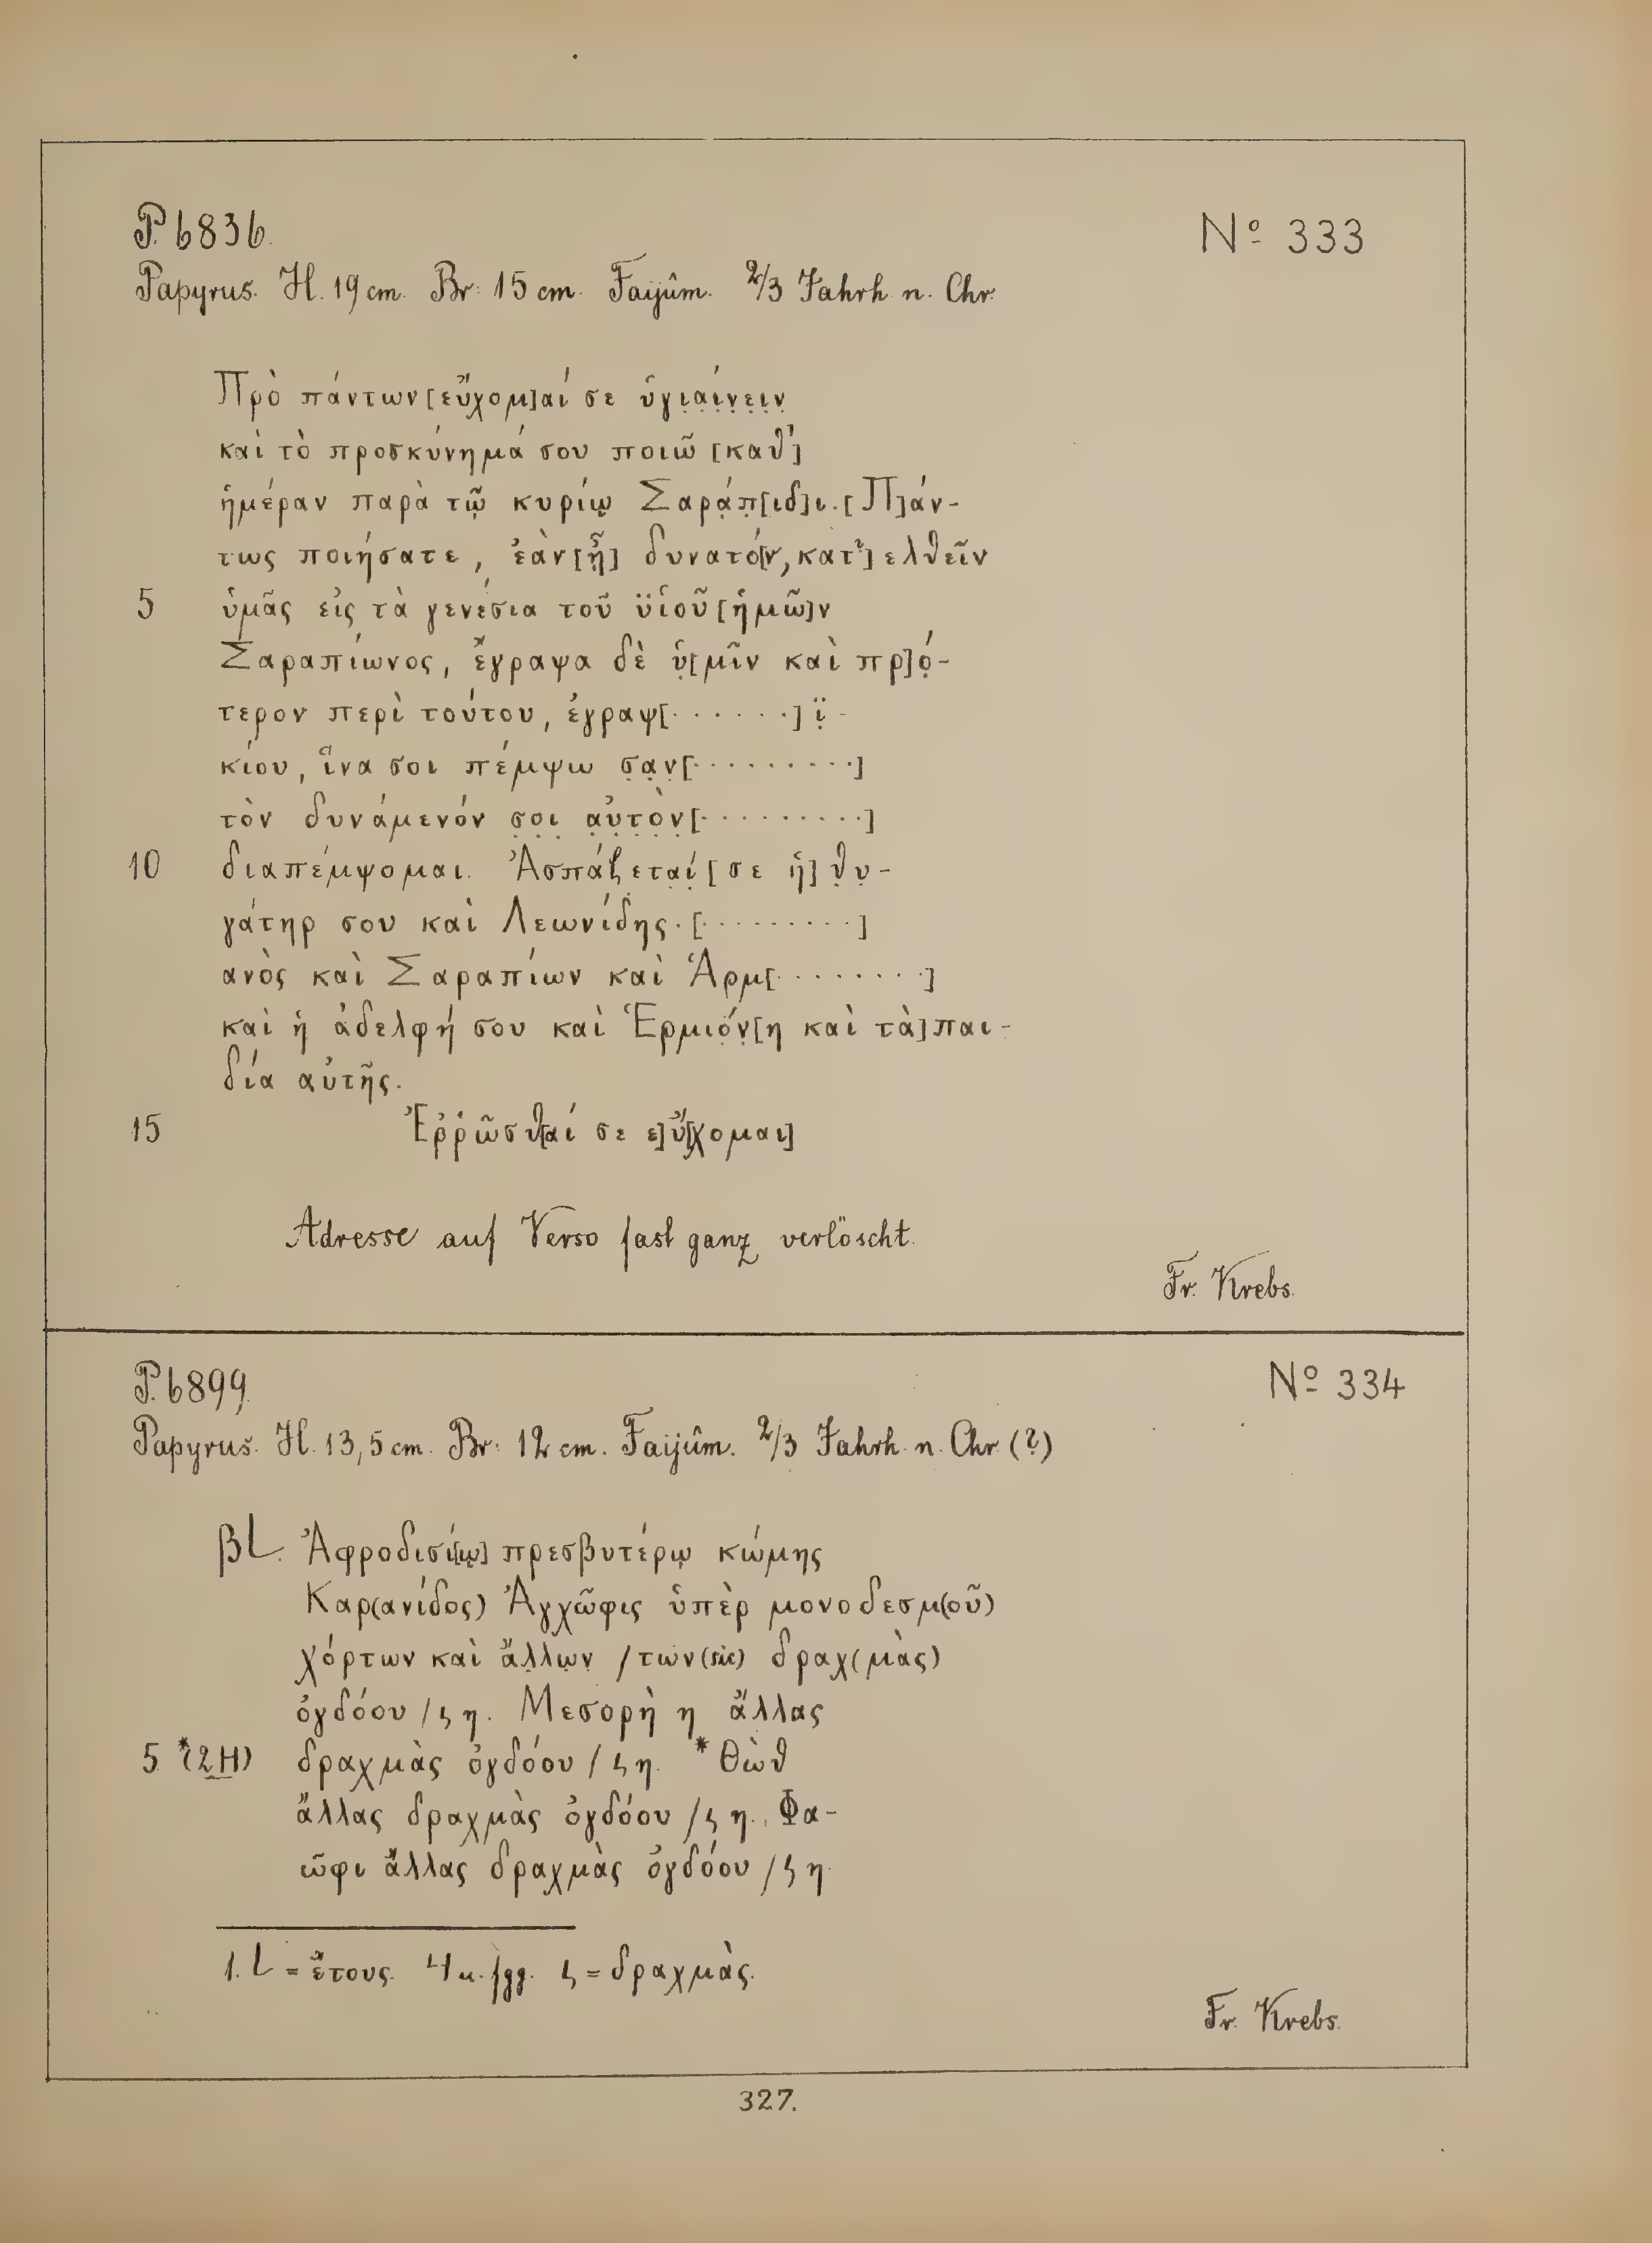 P. 6836. Nº 333
Papyrus. H. 19 cm. Br. 15 cm. Faijûm. 2/3 Jahrh. n. Chr.
Πρὸ πάντων [εὔχομ]αί σε ὑγι̣α̣ί̣ν̣ε̣ι̣ν̣
καὶ τὸ προσκύνημά σου ποιῶ [καθ']
ἡμέραν παρὰ τῷ κυρίῳ Σαρά̣π̣[ιδ]ι. [Π]άν-
τως ποιήσατε, ἐὰν [ᾖ] δυνατό[ν, κατ]ελθεῖν
5 ὑμᾶς εἰς τὰ γενέσια τοῦ ϋἱοῦ [ἡμῶ]ν
Σαραπίωνος, ἔγραψα δὲ ὑ̣[μῖν καὶ πρ]ό̣-
τερον περὶ τούτου, ἐγραψ[· · · · · ·] ϊ̣-
κίου, ἵνα σοι πέμψω σ̣α̣ν̣[· · · · · · · · ·]
τὸν δυνάμενόν σ̣ο̣ι̣ α̣ὐ̣τ̣ὸ̣ν̣[· · · · · · · · ·]
10 διαπέμψομαι. Ἀσπάζ̣ετα̣ί̣ [σε ἡ] θ̣υ̣-
γάτηρ σου καὶ Λεωνίδης. [· · · · · · · · ·]
ανὸς καὶ Σαραπίων καὶ Ἁρμ[· · · · · · · ·]
καὶ ἡ ἀδελφή σου καὶ Ἑρμιό̣ν̣[η καὶ τὰ] παι-
δία αὐτῆς.
15 Ἐῤῥῶσθ[αί σε ε]ὔ[χομαι]
Adresse auf Verso fast ganz verlöscht.
Fr. Krebs.
P. 6899. Nº 334
Papyrus. H. 13,5 cm. Br. 12 cm. Faijûm. 2/3 Jahrh. n. Chr. (?)
βL. Ἀφροδισί[ῳ] πρεσβυτέρῳ κώμης
Καρ(ανίδος) Ἀγχῶφις ὑπὲρ μονοδεσμ(οῦ)
χόρτων καὶ ἄλ̣λω̣ν̣ /των (sic) δραχ(μὰς)
ὀγδόου /ϛ η. Μεσορὴ η ἄλλας
5 *(2 H) δραχμὰς ὀγδόου /ϛ η. *Θὼθ
ἄλλας δραχμὰς ὀγδόου /ϛ η. Φα-
ῶφι ἄλλας δραχμὰς ὀγδόου /ϛ η.
1. L = ἔτους. 4 u. fgg. ϛ = δραχμὰς.
Fr. Krebs.
327.